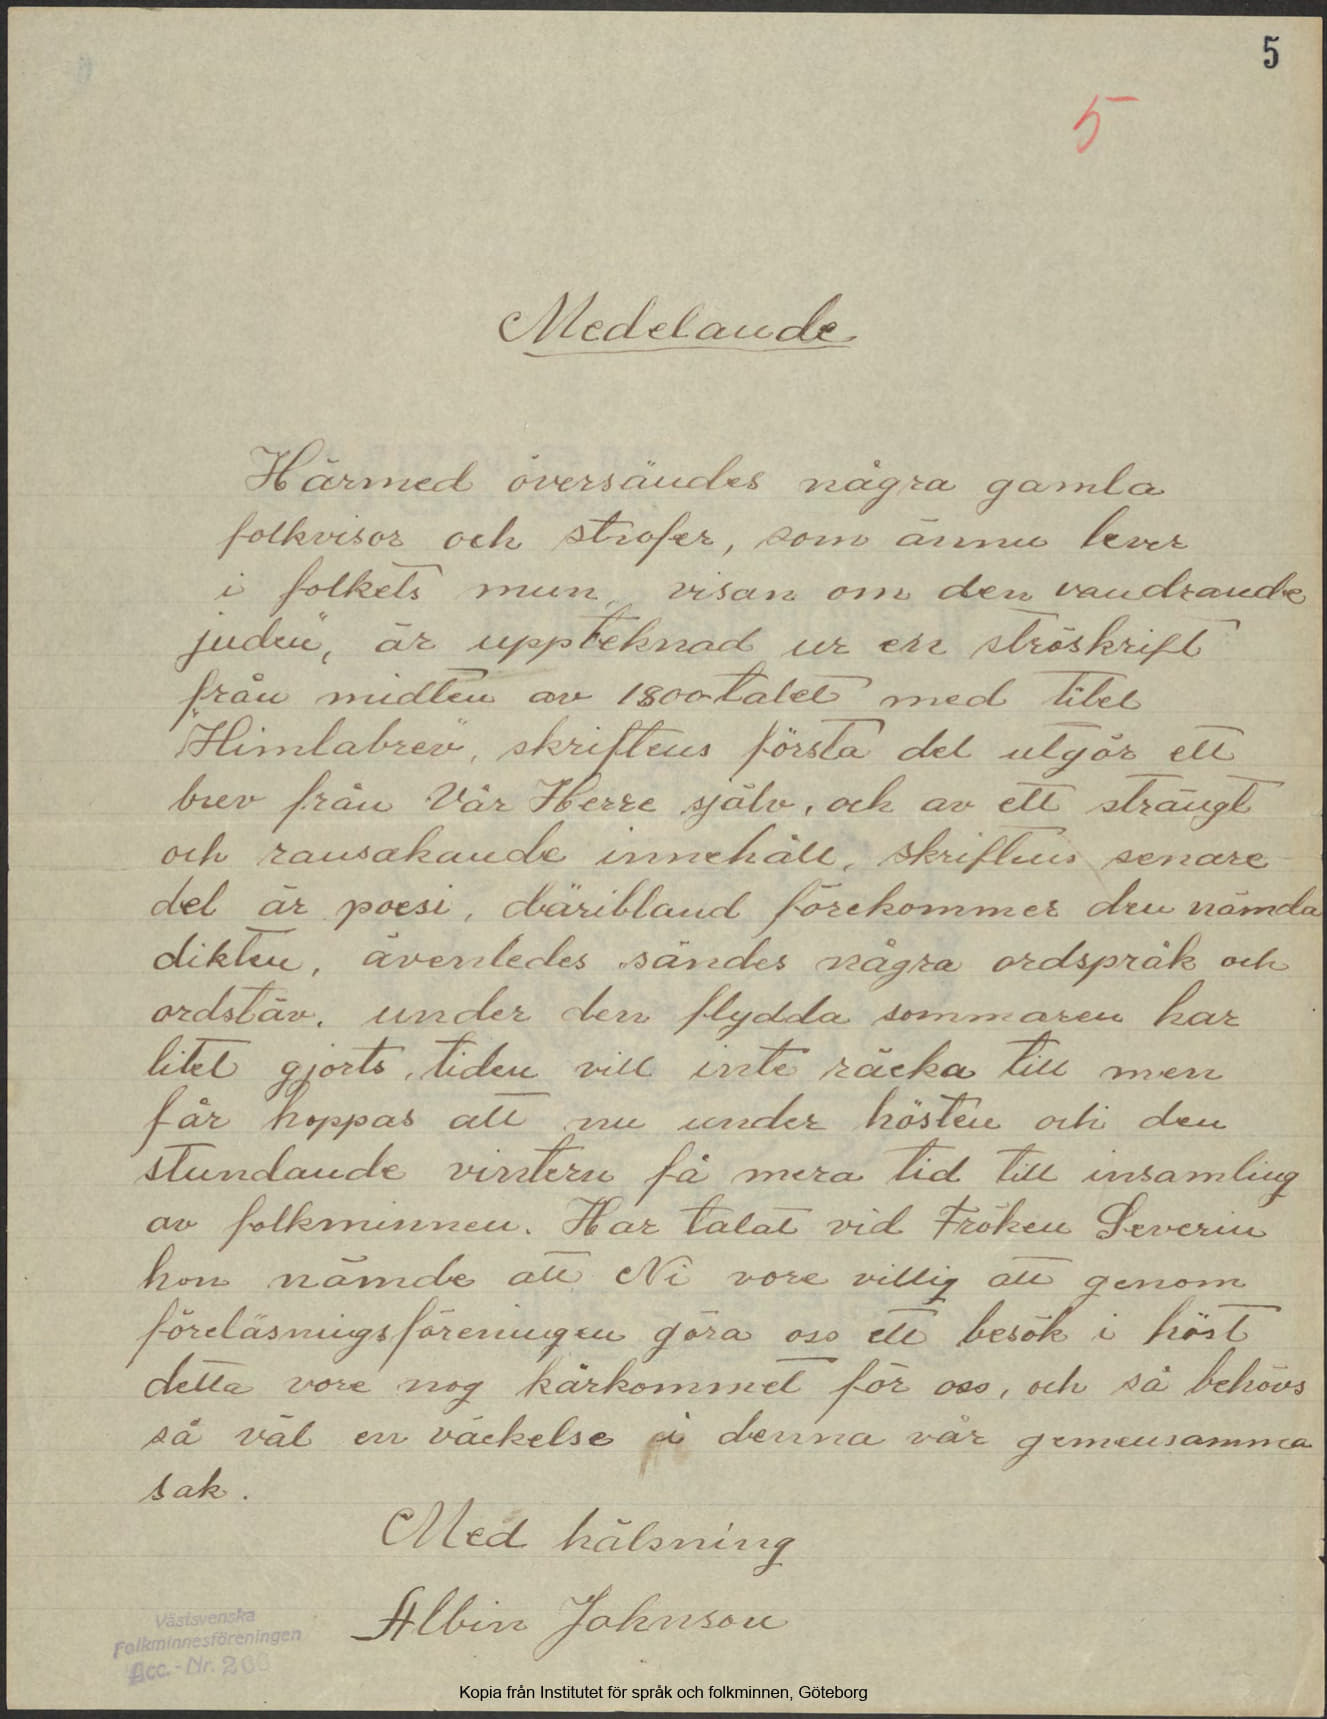 5
5
Medelande
Härmed översändes några gamla
folkvisor och strofer, som ännu lever
i folkets mun, visan om den vandrande
juden", är uppteknad ur en ströskrift
från midten av 1800-talet med titel
"Himlabrev", skriftens första del utgör ett
brev från Vår Herre själv, och av ett strängt
och ransakande innehåll, skriftens senare
del är poesi, däribland förekommer den nämda
dikten, ävenledes sändes några ordspråk och
ordstäv. under den flydda sommaren har
litet gjorts, tiden vill inte räcka till men
får hoppas att nu under hösten och den
stundande vintern få mera tid till insamling
av folkminnen. Har talat vid Fröken Severin
hon nämde att Ni vore villig att genom
föreläsningsföreningen göra oss ett besök i höst
detta vore nog kärkommet för oss, och så behövs
så väl en väckelse i denna vår gemensamma
sak.
Med hälsning
Albin Johnson
Västsvenska
Folkminnesföreningen
Acc.-Nr.
Kopia från Institutet för språk och folkminnen, Göteborg